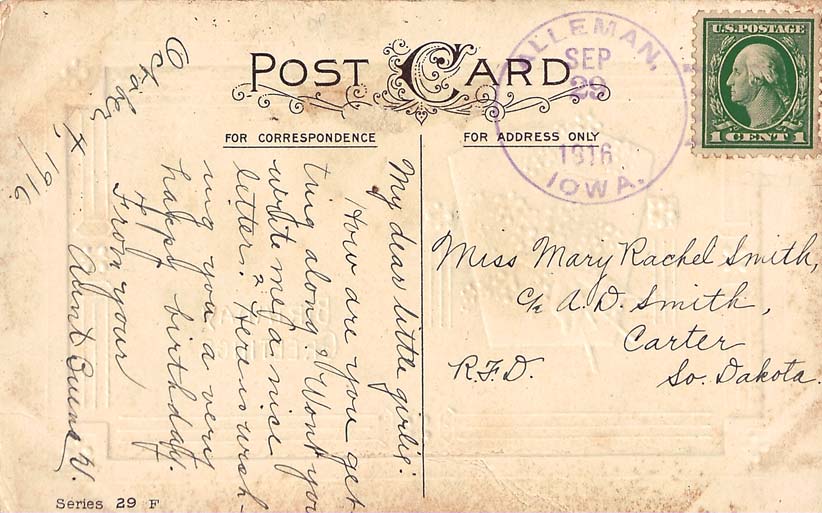 POST CARD
FOR CORRESPONDENCE
FOR ADDRESS ONLY
ALLEMAN,
SEP
29
1916
IOWA.
U.S. POSTAGE
1 CENT 1
October
1916
My dear little girlie:
How are you get-
ting along? Won't you
write me a nice
letter? Here is wish-
ing you a very
happy birthday.
From your
Aunt W.
Miss Mary Rachel Smith,
c/o A. D. Smith,
Carter
R.F.D.
So. Dakota.
Series 29 F